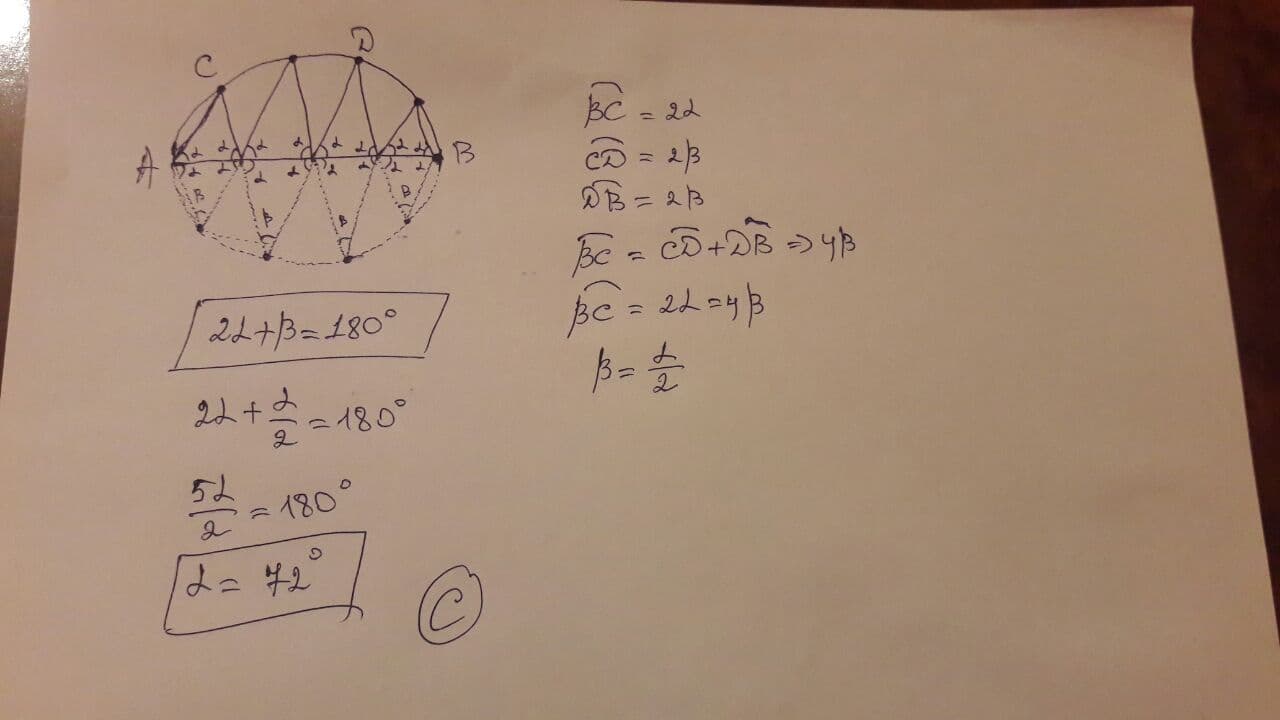 C D
A B
α α α α α α α α
α α α α α α α α
β β β β
2α+β=180°
2α+α/2=180°
5α/2=180°
α=72°
C
B͡C = 2α
C͡D = 2β
D͡B = 2β
B͡C = C͡D+D͡B => 4β
B͡C = 2α=4β
β=α/2